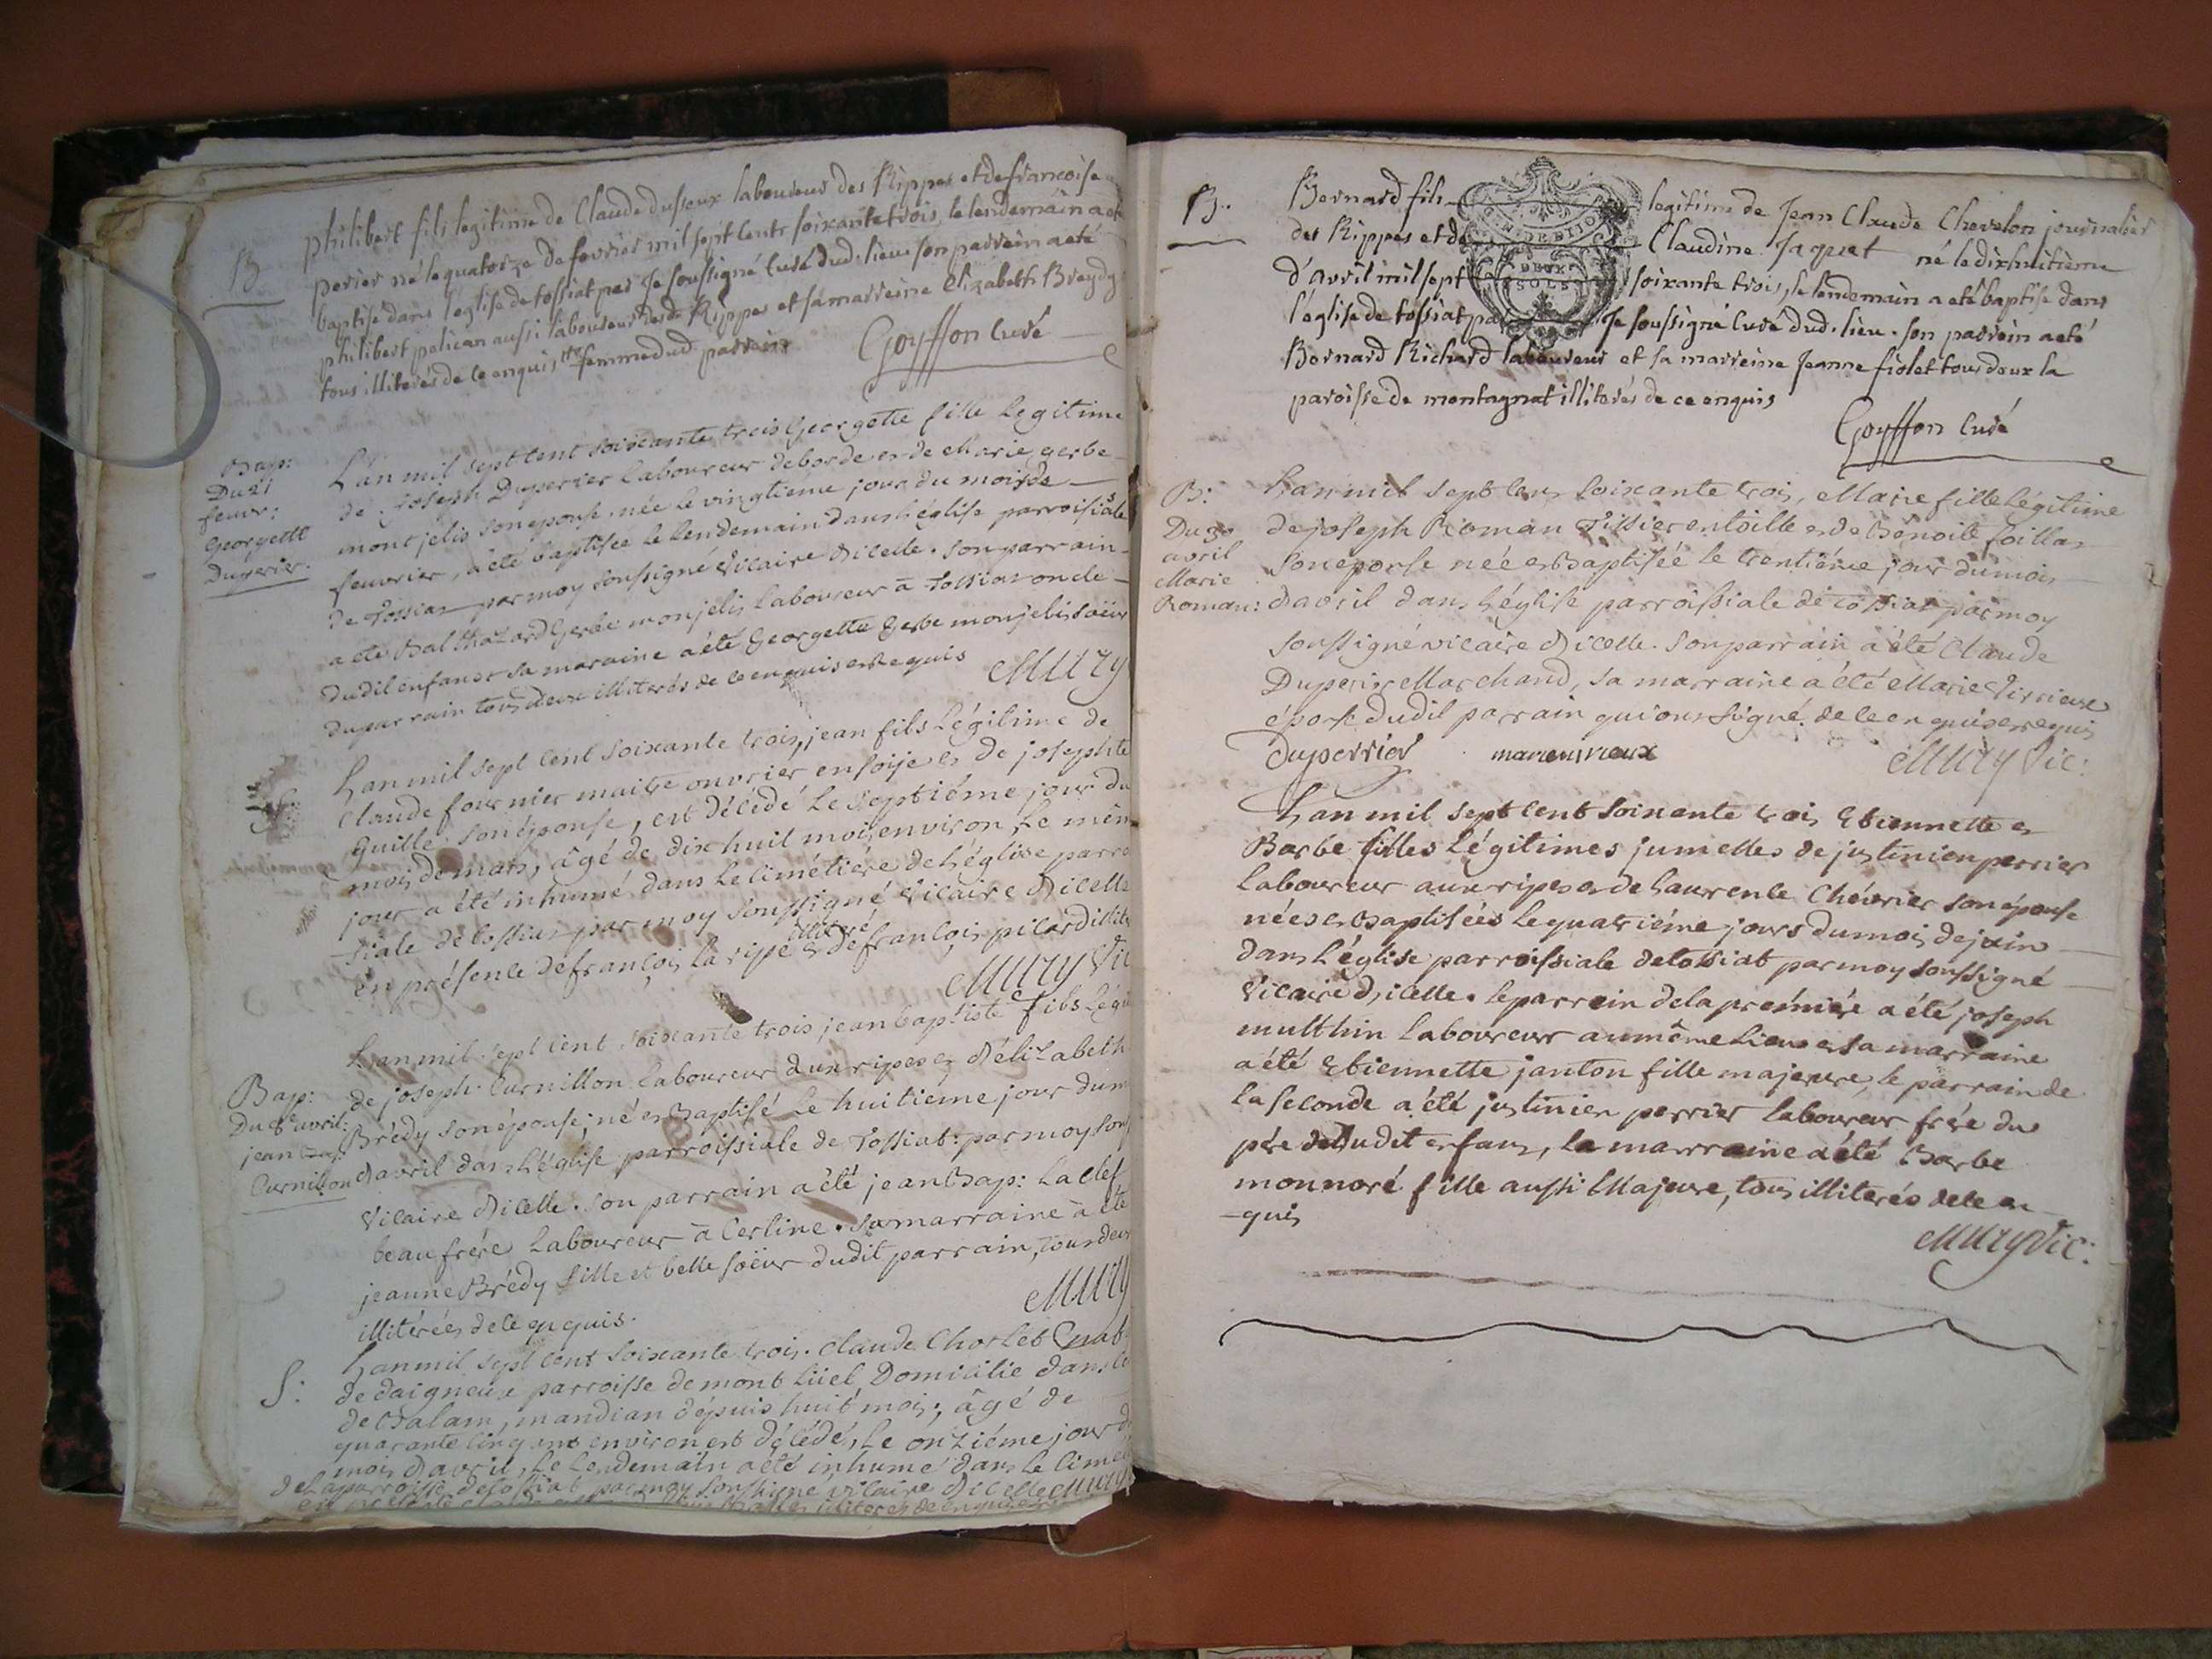 B
philibert fils legitime de Claude dufseux laboureur des Rippes et de francoise
perier né le quatorze de fevrier mil sept cents soixante trois, le lendemain a eté
baptisé dans l'eglise de tossiat par Je soussigné Curé dud. lieu. son parrein a eté
philibert polican aussi laboureur des Rippes et sa marreine Elizabeth Breydy
tous illiterés de ce enquis femme dud parrein
Goyffon Curé
Bap:
Du 21
feuvr:
Georgette
Duperier.
L'an mil sept cent soixante trois Georgette fille Legitime
de Joseph Duperier Laboureur de borde et de Marie gerbe
montjelis son epouse, née le vingtiéme jour du mois de
feuvrier, a été baptisée le lendemain dans l'église parroissiale
de tossiat par moy soussigné Vicaire d'icelle. son parrain
a été Balthazard Gerbe monjelis Laboureur à tossiat oncle
dudit enfant et sa maraine a été Georgette Gerbe monjelis soeur
du parrain tous deux illiterés de ce enquis et requis
Mury
L'an mil sept cent soixante trois, jean fils Légitime de
Claude fournier maitre ouvrier en soije et de josephte
Guille son épouse, est décédé Le septiéme jour du
mois de mars, âgé de dix huit mois environ, Le mêm
jour a été inhumé dans Le cimétiére de l'église parro
ssiale de tossiat par moy soussigné Vicaire d'icelle
en présence de françois La ripe illitéré et de françois pilard illité
Mury Vic
Bap:
Du 8e avril:
jean bap:
Curnillon
L'an mil sept cent soixante trois jean baptiste fils Légi
de joseph Curnillon Laboureur aux ripes et d'élizabeth
Brédy son épouse; né et Baptisé Le huitiéme jour du m
d'avril dans L'église parroissiale de tossiat: par moy sou
Vicaire d'icelle. son parrain a été jean Bap: La clef
beau frére Laboureur à Certine. sa marraine a été
jeanne Brédy fille et belle soeur dudit parrain, tous deux
illitérés de ce enquis.
Mury
S:
L'an mil sept cent soixante trois. Claude Chorlet
de daigneux parroisse de mont Lüel Domicilié dans le
de Balam, mandian dépuis huit mois, âgé de
quarante cinq ans environ est décédé, Le onziéme jour d
mois d'avril, Le Lendemain a été inhumé dans Le cime
de La parroisse de tossiat par moy soussigné vicaire d'icelle Mury
B.
Bernard fils legitime de Jean Claude Chevelon journalier
des Rippes et de Claudine Jaquet né le dixhuitième
d'avril mil sept soixante trois, le lendemain a eté baptisé dans
l'église de tossiat par Je soussigné Curé dud. lieu. son parrein a eté
Bernard Richard laboureur et sa marreine Jeanne fiolet tous deux la
paroisse de montagnat illiterés de ce enquis
Goyffon Curé
B:
Du 30
avril
Marie
Roman:
L'an mil sept cens soixante trois, Marie fille Légitime
de joseph Roman tissier en toille et de Benoite Coillar
son epouse née et Baptisée le trentiéme jour du mois
d'avril dans L'église parroissiale de tossiat par moy
soussigné vicaire d'icelle. son parrain a été Claude
Duperier Marchand, sa marraine a été Marie Virieux
épouse dudit parrain qui ont signé. de ce enquis et requis
Duperrier marie virieux Mury Vic:
L'an mil sept cent soixante trois Etiennette et
Barbe filles Légitimes jumelles de justinien perrier
Laboureur aux ripes et de Laurence Chévrier son épouse
nées et baptisées Le quatriéme jours du mois de juin
dans L'église parroissiale de tossiat par moy soussigné
Vicaire d'icelle. Le parrein de la premiére a été joseph
multhin Laboureur au même Lieu et sa marraine
a été Etiennette janton fille majeure, le parrain de
La seconde a été justinien perrier Laboureur frére du
pére dudit enfans, La marraine a été Barbe
monnoré fille aussi Majeure, tous illiterés de ce en
-quis
Mury Vic: